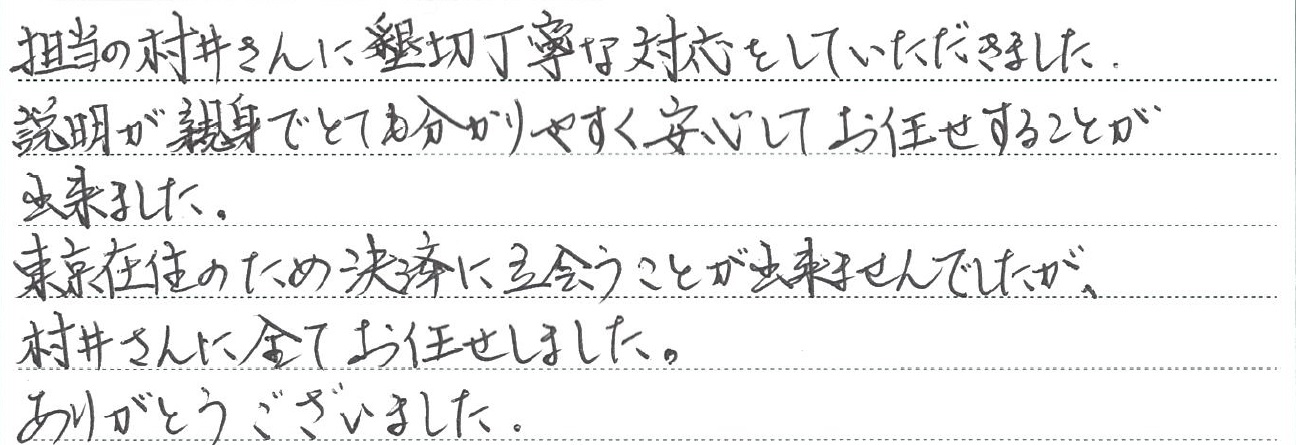 担当の村井さんに懇切丁寧な対応をしていただきました.
説明が親身でとても分かりやすく安心してお任せすることが
出来ました。
東京在住のため決済に立会うことが出来ませんでしたが、
村井さんに全てお任せしました。
ありがとうございました.